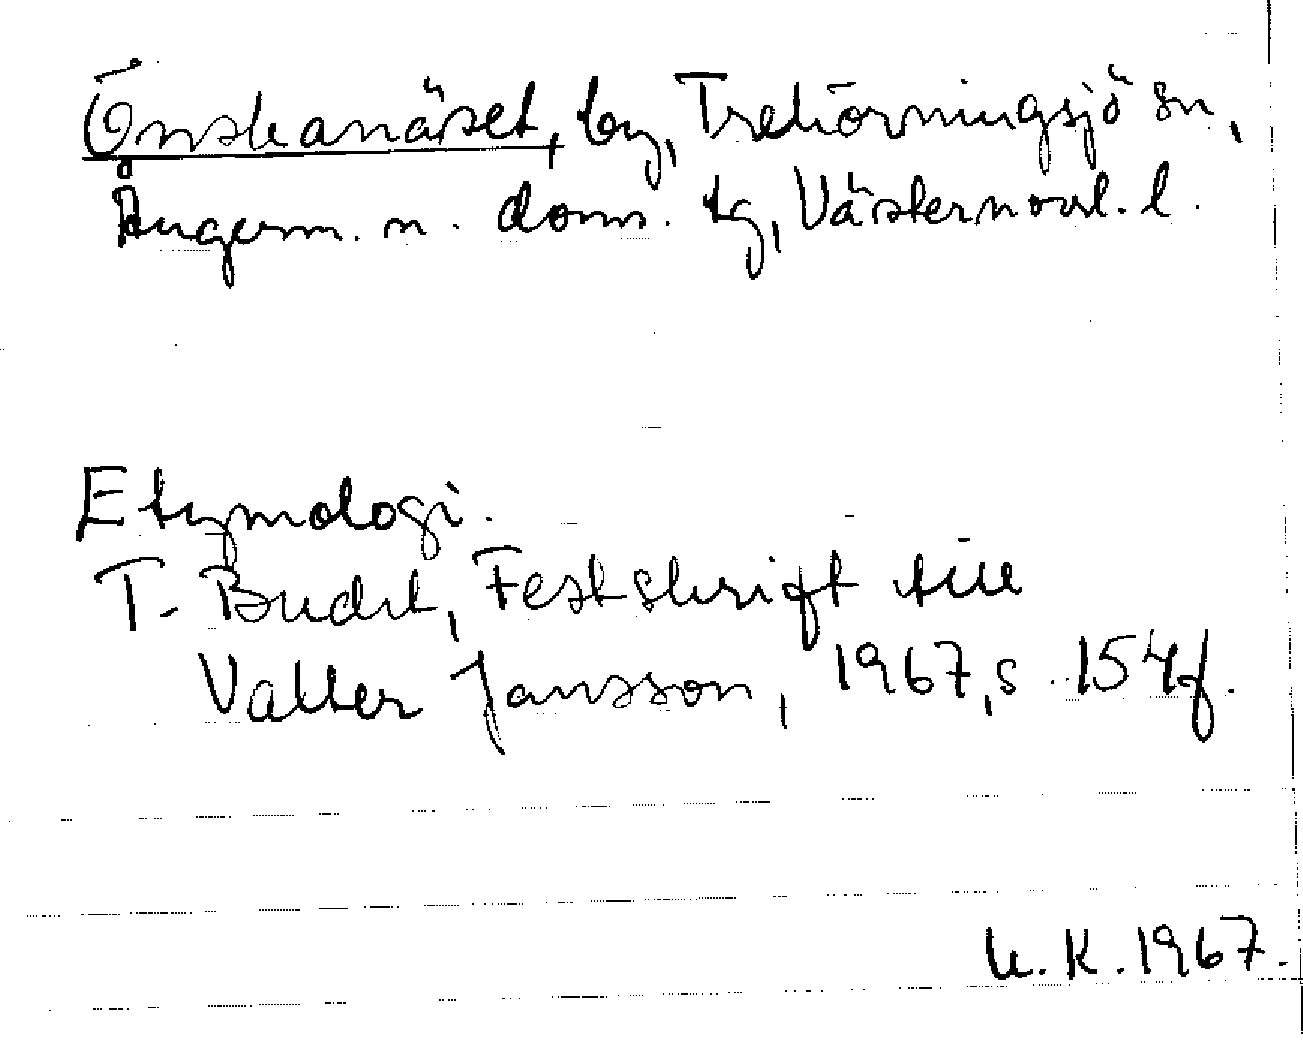 Önskanäset, by, Trehörningsjö sn,
Ångerm. n. doms. tg, Västernorrl. l.
Etymologi.
T. Bucht, Festskrift till
Valter Jansson, 1967, s. 154 f.
U. K. 1967.